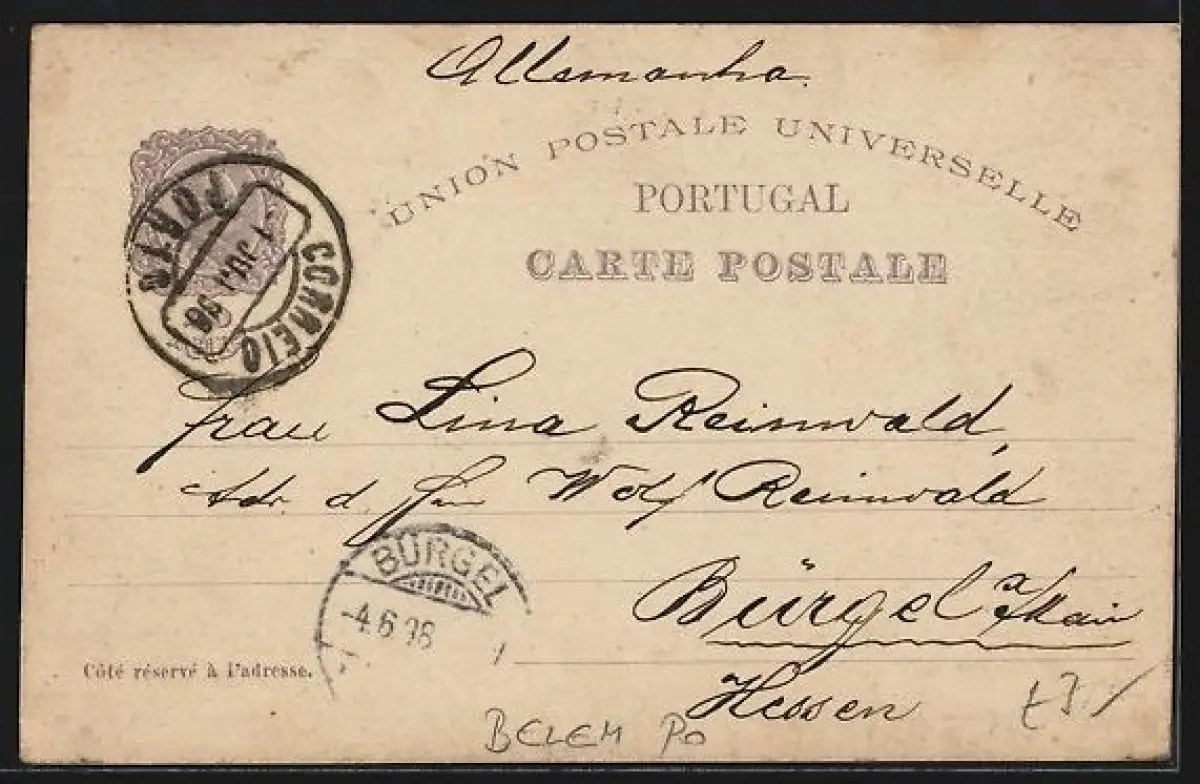 Allemanha.
UNION POSTALE UNIVERSELLE
PORTUGAL
CARTE POSTALE
CORREIO
PORTO
1 JUN 96
Frau Lina Reinwald,
Adr. d. Fa. Wolf Reinwald
BÜRGEL
-4.6.96
Bürgel a/Main
Hessen
Côté réservé à l'adresse.
BELEM Po